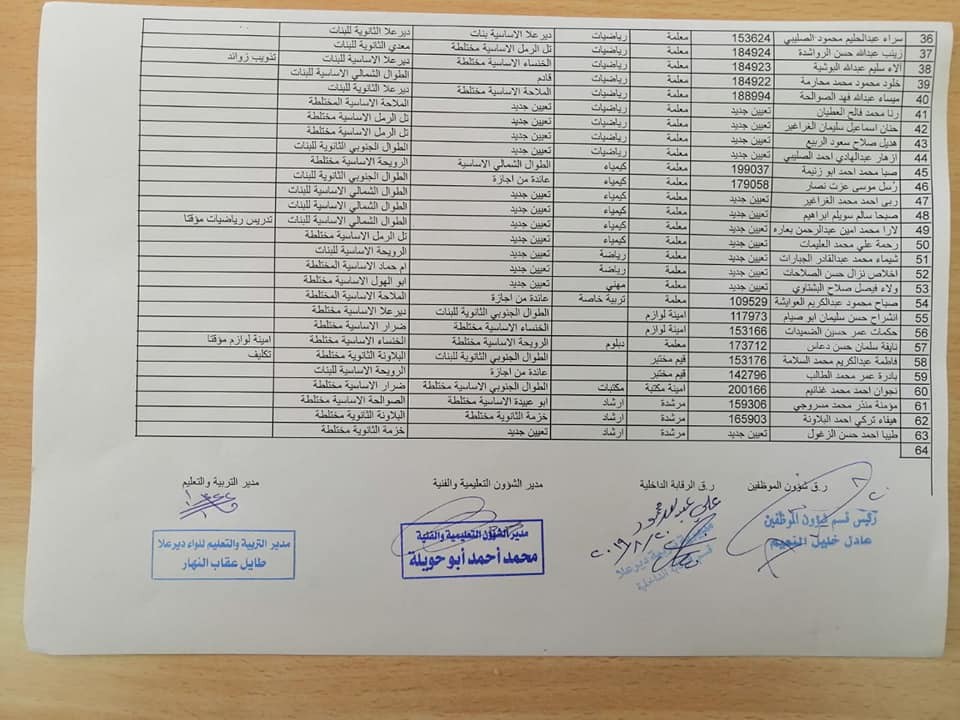 36 سراء عبدالحليم محمود الصليبي 153624 معلمة رياضيات ديرعلا الاساسية بنات ديرعلا الثانوية للبنات
37 زينب عبدالله حسن الرواشدة 184924 معلمة رياضيات تل الرمل الاساسية مختلطة معدي الثانوية للبنات
38 آلاء سليم عبدالله البوشية 184923 معلمة رياضيات الخنساء الاساسية مختلطة ديرعلا الثانوية للبنات تذويب زوائد
39 خلود محمود محمد محارمة 184922 معلمة رياضيات قادم الطوال الشمالي الاساسية للبنات
40 ميساء عبدالله فهد الصوالحة 188994 معلمة رياضيات الملاحة الاساسية المختلطة ديرعلا الثانوية للبنات
41 رنا محمد فالح العطيان تعيين جديد معلمة رياضيات تعيين جديد الملاحة الاساسية المختلطة
42 حنان اسماعيل سليمان الغراغير تعيين جديد معلمة رياضيات تعيين جديد تل الرمل الاساسية مختلطة
43 هديل صلاح سعود الربيع تعيين جديد معلمة رياضيات تعيين جديد تل الرمل الاساسية مختلطة
44 ازهار عبدالهادي احمد الصليبي تعيين جديد معلمة رياضيات تعيين جديد الطوال الجنوبي الثانوية للبنات
45 صبا محمد احمد ابو زنيمة 199037 معلمة كيمياء الطوال الشمالي الاساسية الرويحة الاساسية المختلطة
46 رسل موسى عزت نصار 179058 معلمة كيمياء عائدة من اجازة الطوال الجنوبي الثانوية للبنات
47 ربى احمد محمد الغراغير تعيين جديد معلمة كيمياء تعيين جديد الطوال الشمالي الاساسية للبنات
48 صبحا سالم سويلم ابراهيم تعيين جديد معلمة كيمياء تعيين جديد الطوال الشمالي الاساسية للبنات
49 لارا محمد امين عبدالرحمن بعاره تعيين جديد معلمة كيمياء تعيين جديد الطوال الشمالي الاساسية للبنات تدريس رياضيات مؤقتا
50 رحمة علي محمد العليمات تعيين جديد معلمة كيمياء تعيين جديد تل الرمل الاساسية مختلطة
51 شيماء محمد عبدالقادر الجبارات تعيين جديد معلمة رياضة تعيين جديد الرويحة الاساسية للبنات
52 اخلاص نزال حسن الصلاحات تعيين جديد معلمة رياضة تعيين جديد ام حماد الاساسية المختلطة
53 ولاء فيصل صلاح البشتاوي تعيين جديد معلمة مهني تعيين جديد ابو الهول الاساسية المختلطة
54 صباح محمود عبدالكريم العوايشة 109529 معلمة تربية خاصة عائدة من اجازة الملاحة الاساسية المختلطة
55 انشراح حسن سليمان ابو صيام 117973 امينة لوازم الطوال الجنوبي الثانوية للبنات ديرعلا الاساسية مختلطة
56 حكمات عمر حسين الضميدات 153166 امينة لوازم الخنساء الاساسية مختلطة ضرار الاساسية مختلطة
57 نايفة سلمان حسن دعاس 173712 معلمة دبلوم الرويحة الاساسية مختلطة الخنساء الاساسية مختلطة امينة لوازم مؤقتا
58 فاطمة عبدالكريم محمد السلامة 153176 قيم مختبر الطوال الجنوبي الثانوية للبنات البلاونة الثانوية مختلطة تكليف
59 بادرة عمر محمد الطالب 142796 قيم مختبر عائدة من اجازة الرويحة الاساسية للبنات
60 نجوان احمد محمد غنانيم 200166 امينة مكتبة مكتبات الطوال الجنوبي الاساسية مختلطة ضرار الاساسية مختلطة
61 مؤمنة منذر محمد مسروجي 159306 مرشدة ارشاد ابو عبيدة الاساسية مختلطة الصوالحة الاساسية مختلطة
62 هيفاء تركي احمد البلاونة 165903 مرشدة ارشاد خزمة الثانوية مختلطة البلاونة الثانوية مختلطة
63 طيبا احمد حسن الزغول تعيين جديد مرشدة ارشاد تعيين جديد خزمة الثانوية مختلطة
64
ر.ق شؤون الموظفين ر.ق الرقابة الداخلية مدير الشؤون التعليمية والفنية مدير التربية والتعليم
رئيس قسم شؤون الموظفين
عادل خليل النعيم
٢٠١٩/٨/٢٠
مدير الشؤون التعليمية والفنية
محمد أحمد أبو حويلة
مدير التربية والتعليم للواء ديرعلا
طايل عقاب النهار